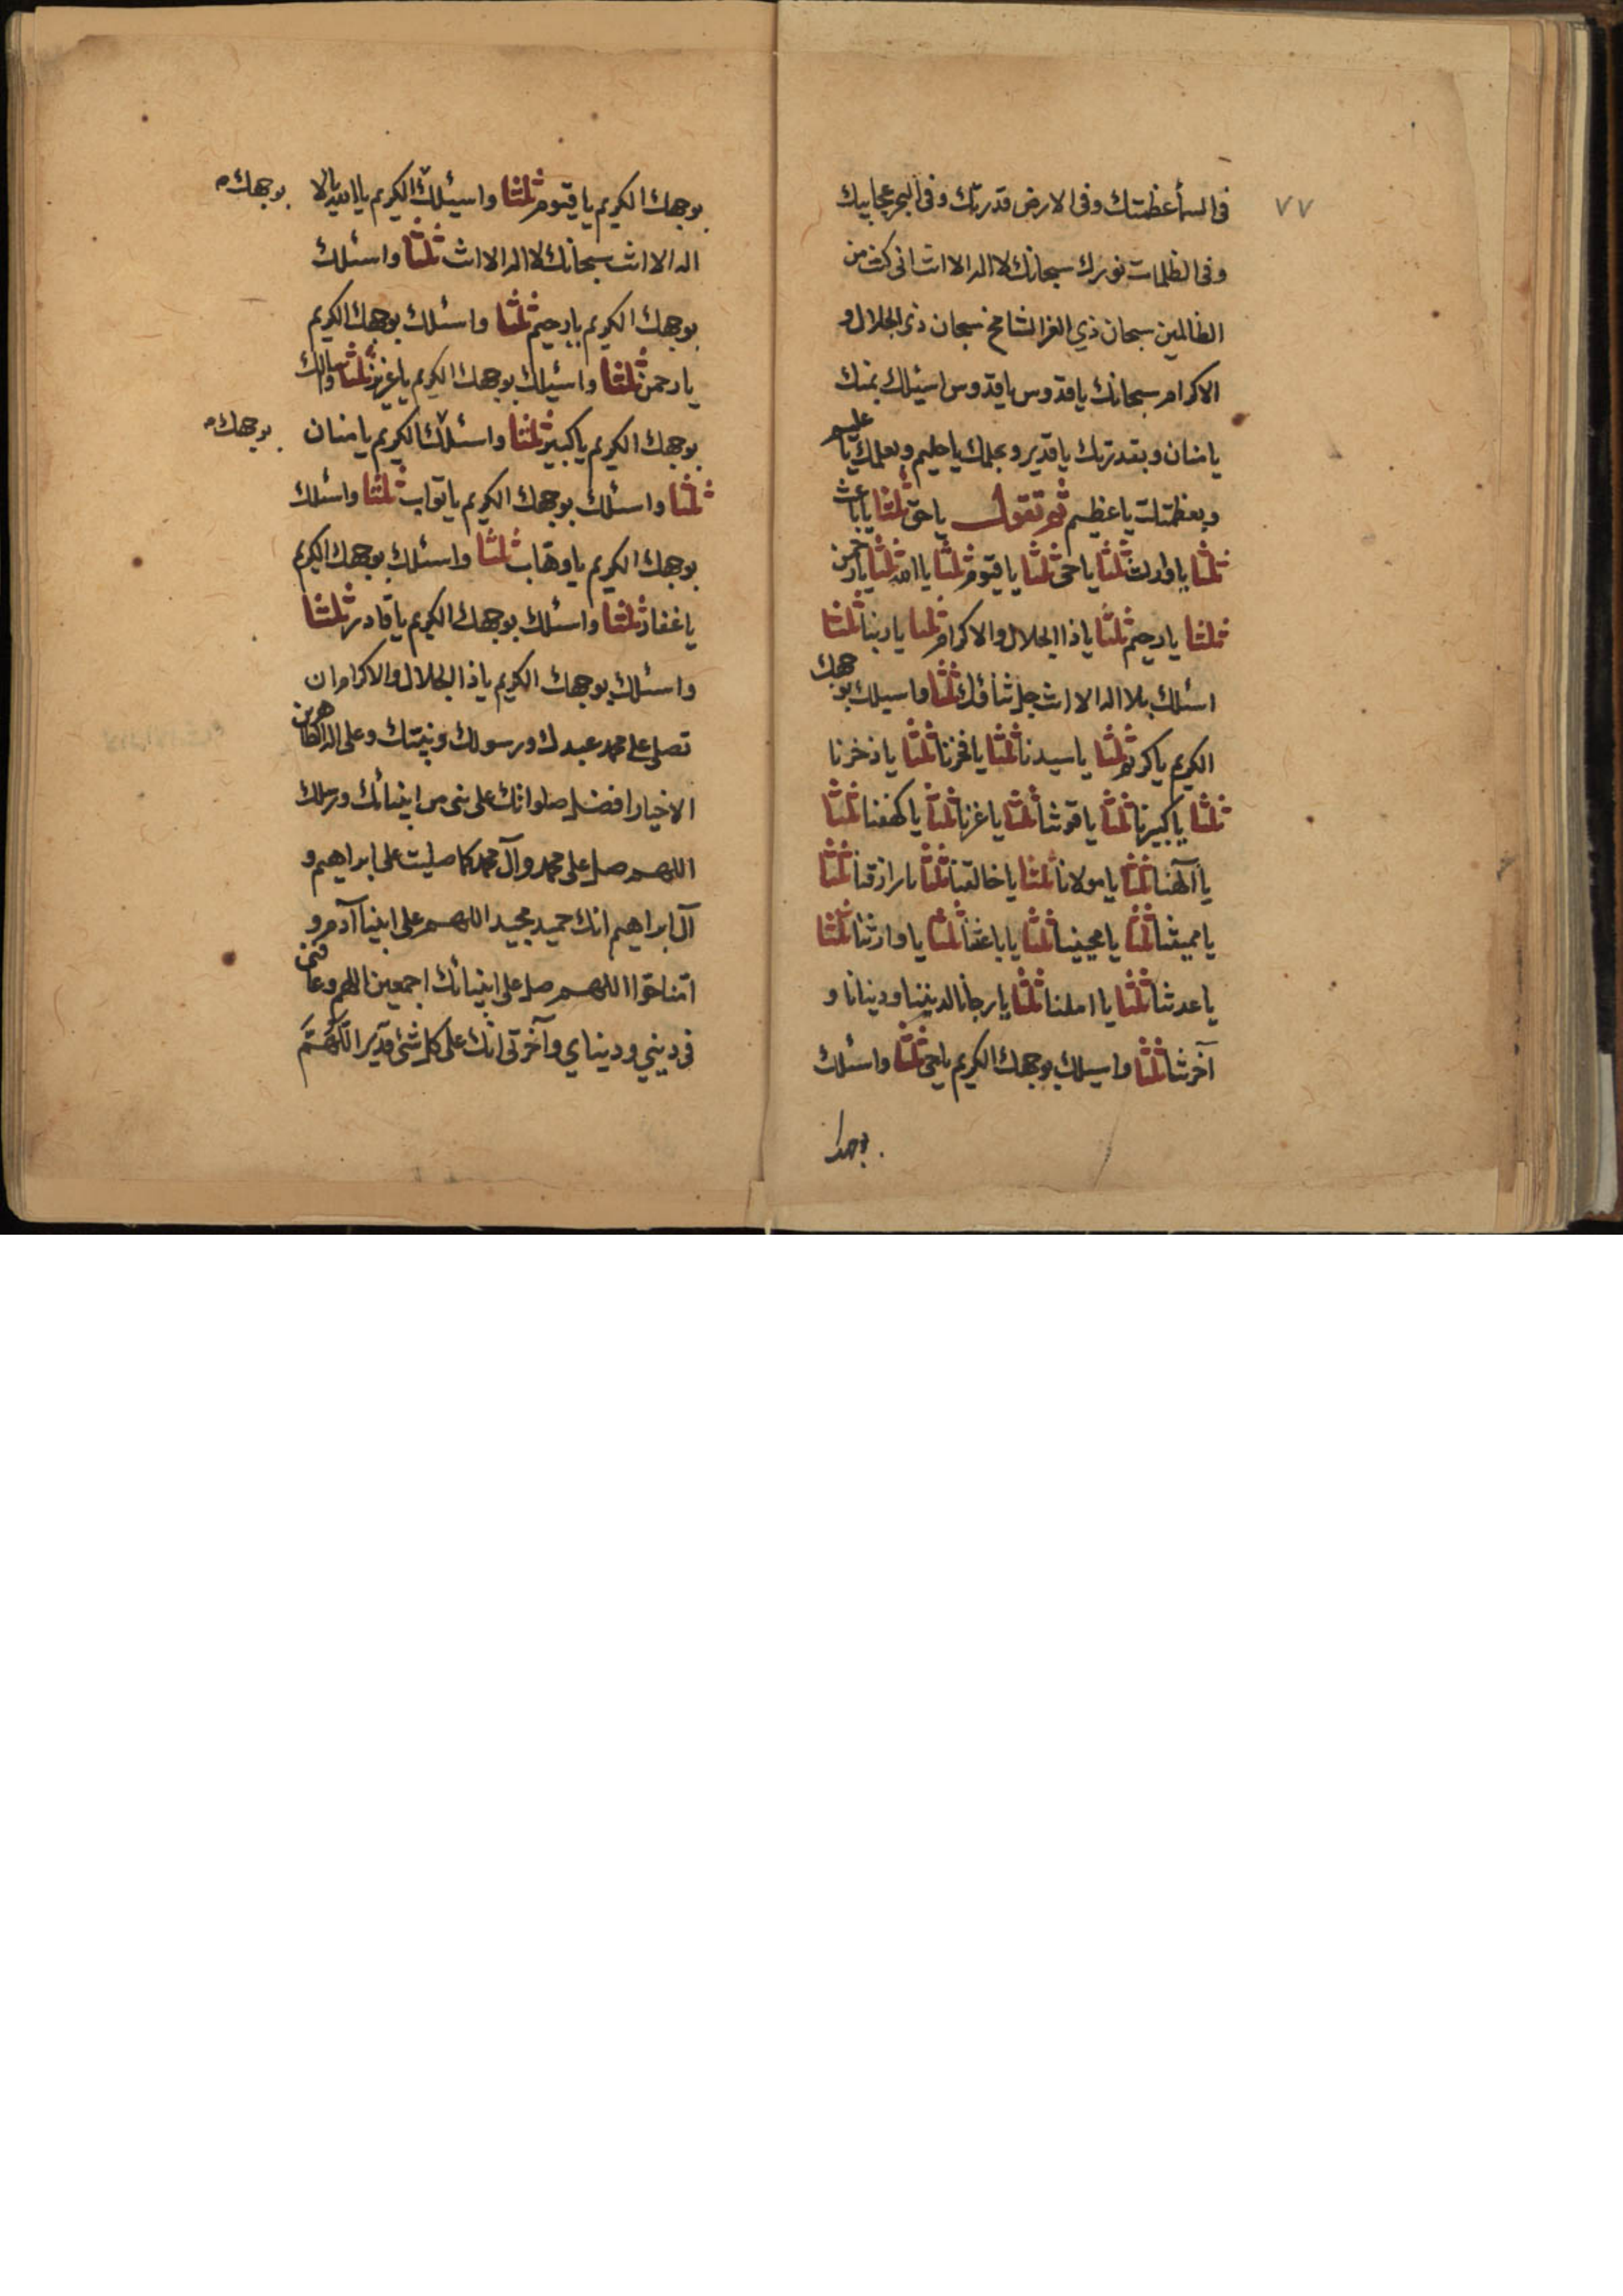 ٧٧
في السمأ عظمتك وفي الارض قدرتك وفي البحر عجايبك
وفي الظلمات نورك سبحانك لا اله الا انت اني كنت من
الظالمين سبحان ذي العز الشامخ سبحان ذي الجلال و
الاكرام سبحانك يا قدوس يا قدوس اسئلك بمنك
يا منان وبقدرتك يا قدير وبحلمك يا حليم وبعلمك يا عليم
وبعظمتك يا عظيم ثم تقول يا حق ثلثا يا باعث
ثلثا يا وارث ثلثا يا حي ثلثا يا قيوم ثلثا يا الله ثلثا يا رحمن
ثلثا يا رحيم ثلثا يا ذا الجلال والاكرام ثلثا يا ربنا ثلثا
اسئلك بلا اله الا انت جل ثناؤك ثلثا واسيلك بوجهك
الكريم يا كريم ثلثا يا سيدنا ثلثا يا فخرنا ثلثا يا ذخرنا
ثلثا يا كبيرنا ثلثا يا قوتنا ثلثا يا عزنا ثلثا يا كهفنا ثلثا
يا آلهنا ثلثا يا مولانا ثلثا يا خالقنا ثلثا يا رازقنا ثلثا
يا مميتنا ثلثا يا محيينا ثلثا يا باعثنا ثلثا يا وارثنا ثلثا
يا عدتنا ثلثا يا املنا ثلثا يا رجانا لديننا ودنيانا و
آخرتنا ثلثا واسيلك بوجهك الكريم يا حي ثلثا واسئلك
بوجهك الكريم يا قيوم ثلثا واسيئلك الكريم يا الله يا لا بوجهك
اله الا انت سبحانك لا اله الا انت ثلثا واسئلك
بوجهك الكريم يا رحيم ثلثا واسئلك بوجهك الكريم
يا رحمن ثلثا واسئيلك بوجهك الكريم يا عزيز ثلثا واسالك
بوجهك الكريم يا كبير ثلثا واسئلك الكريم يا منان بوجهك
ثلثا واسئلك بوجهك الكريم يا تواب ثلثا واسئلك
بوجهك الكريم يا وهاب ثلثا واسئلك بوجهك الكريم
يا غفار ثلثا واسئلك بوجهك الكريم يا قادر ثلثا
واسئلك بوجهك الكريم يا ذا الجلال والاكرام ان
تصل على محمد عبدك ورسولك ونبيتك وعلى اله الطاهرين
الاخيار افضل صلواتك على نبي من انبيائك ورسلك
اللهم صل على محمد وآل محمد كما صليت على ابراهيم و
آل ابراهيم انك حميد مجيد اللهم على ابينا آدم و
امنا حوا اللهم صل على انبيائك اجمعين اللهم وعافني
في ديني ودنياي وآخرتي انك على كل شئ قدير اللّهمّ